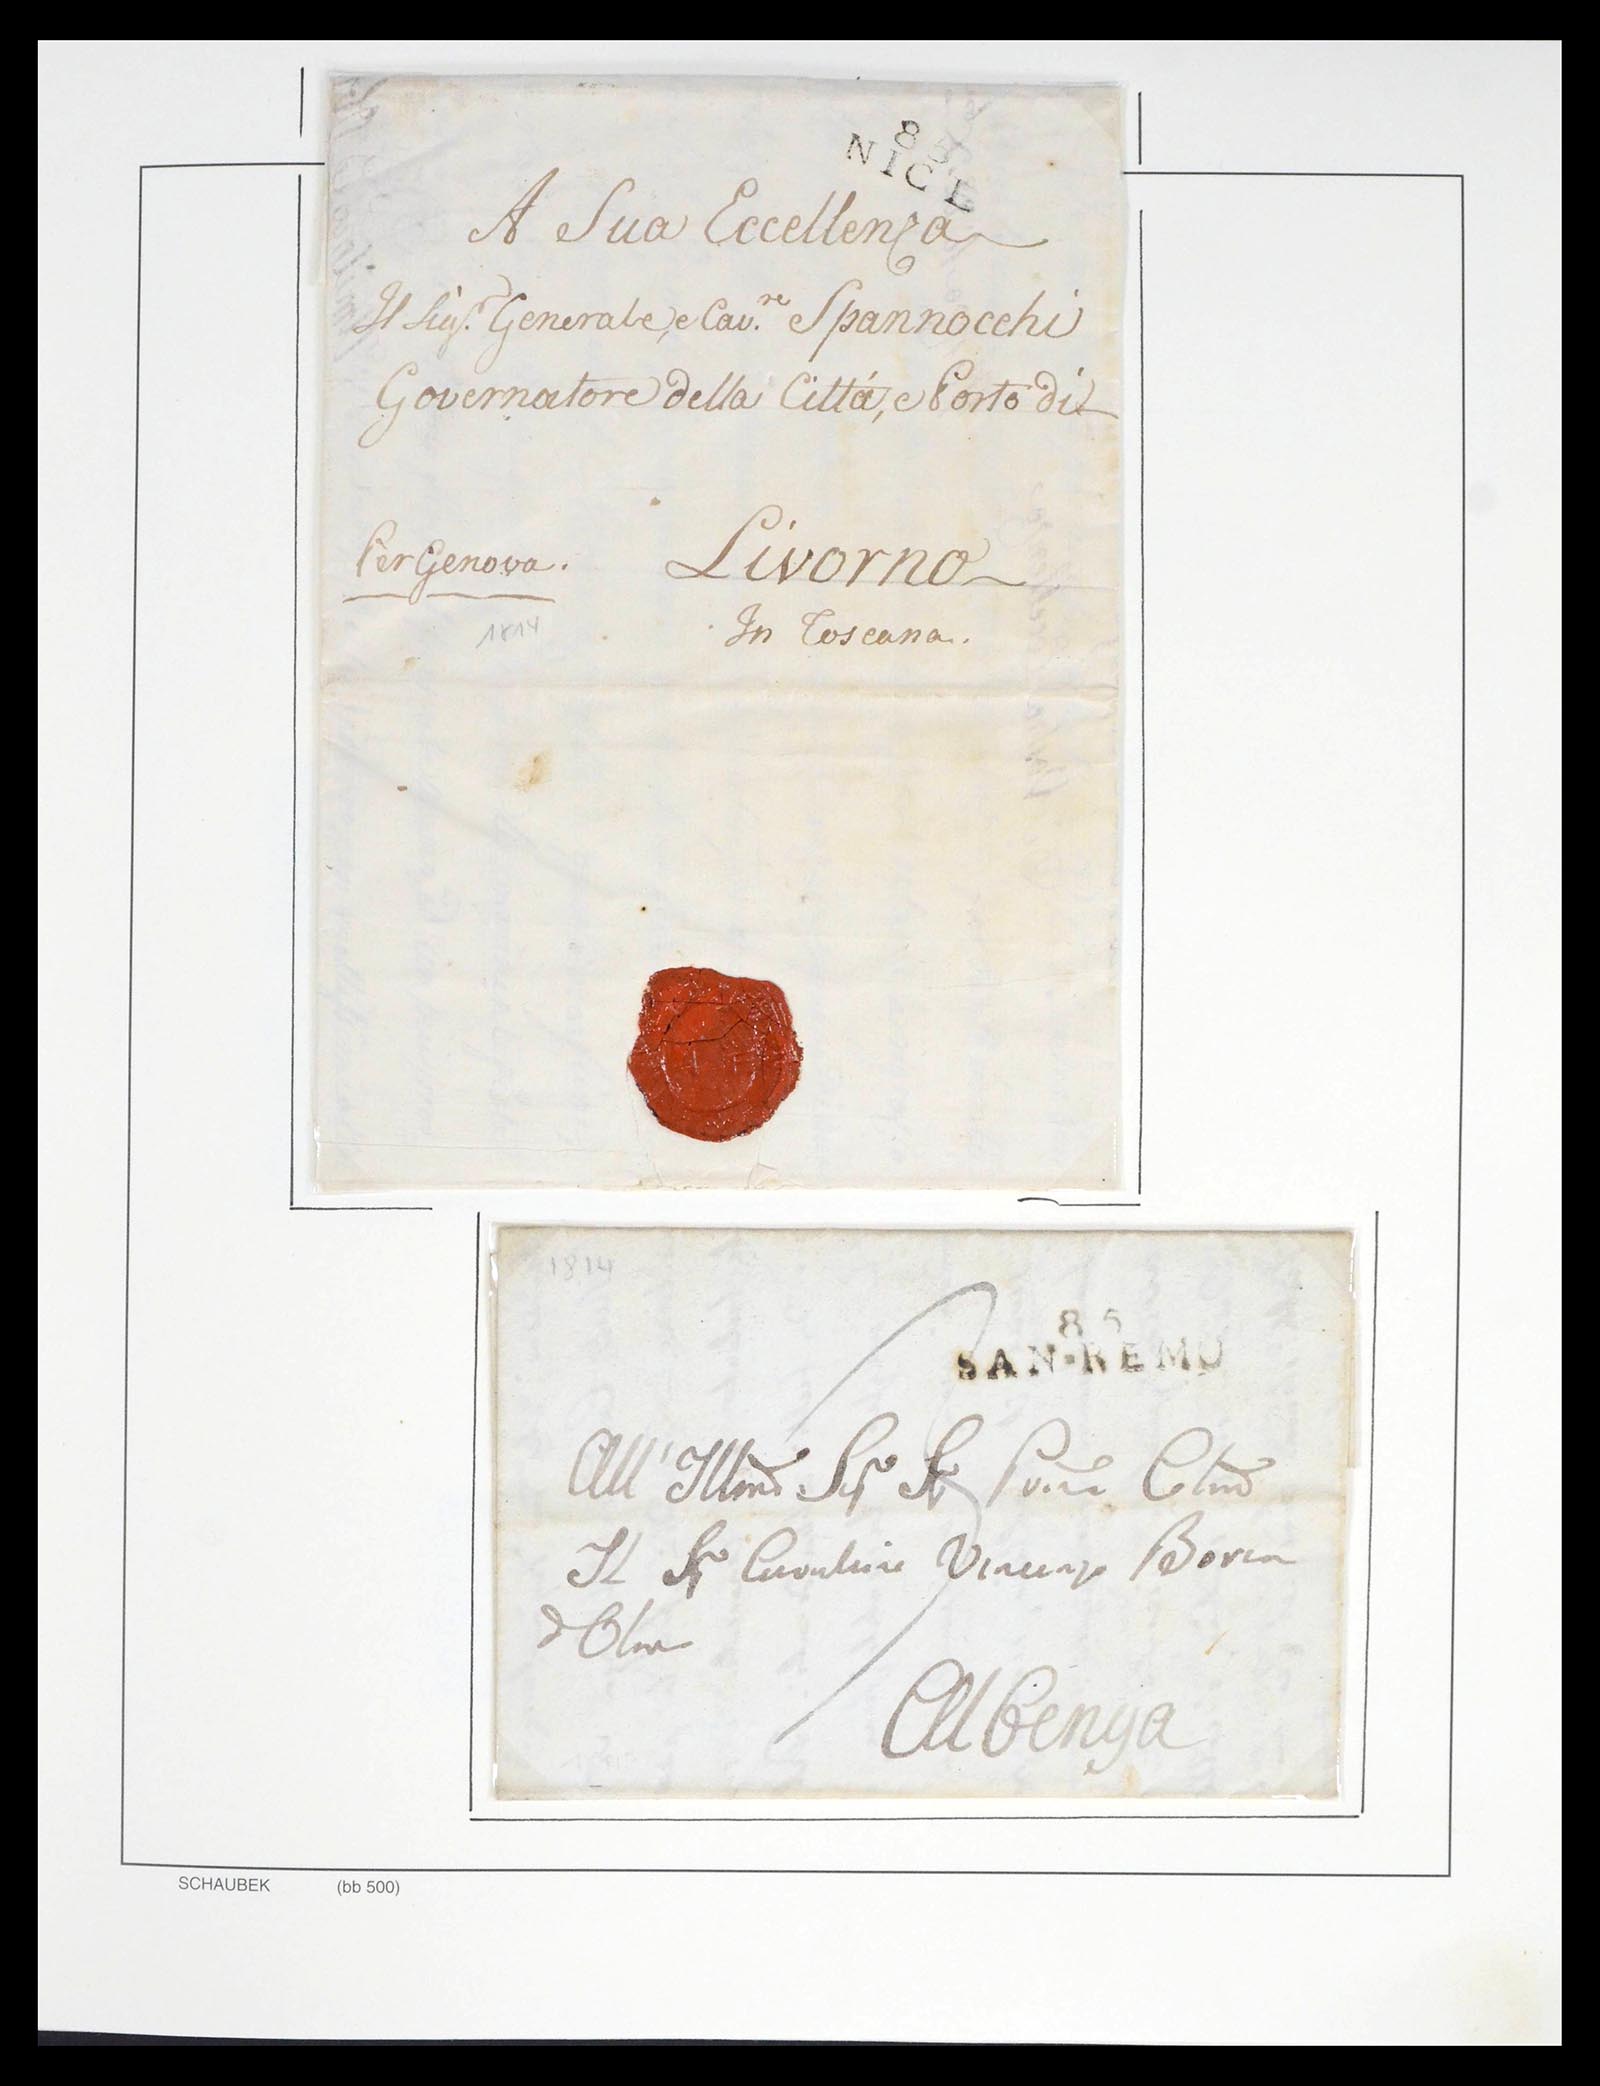 85
NICE
A Sua Eccellenza
Il Sig.r Generale, e Cav.re Spannocchi
Governatore della Cittá, e Porto di
Per Genova.
Livorno
1814
In Toscana.
1814
85
SAN-REMO
All' Illmo Sigr Sigr Prone Colmo
Il Sigr Cavaliere Vincenzo
d'Olmo
Albenga
SCHAUBEK (bb 500)